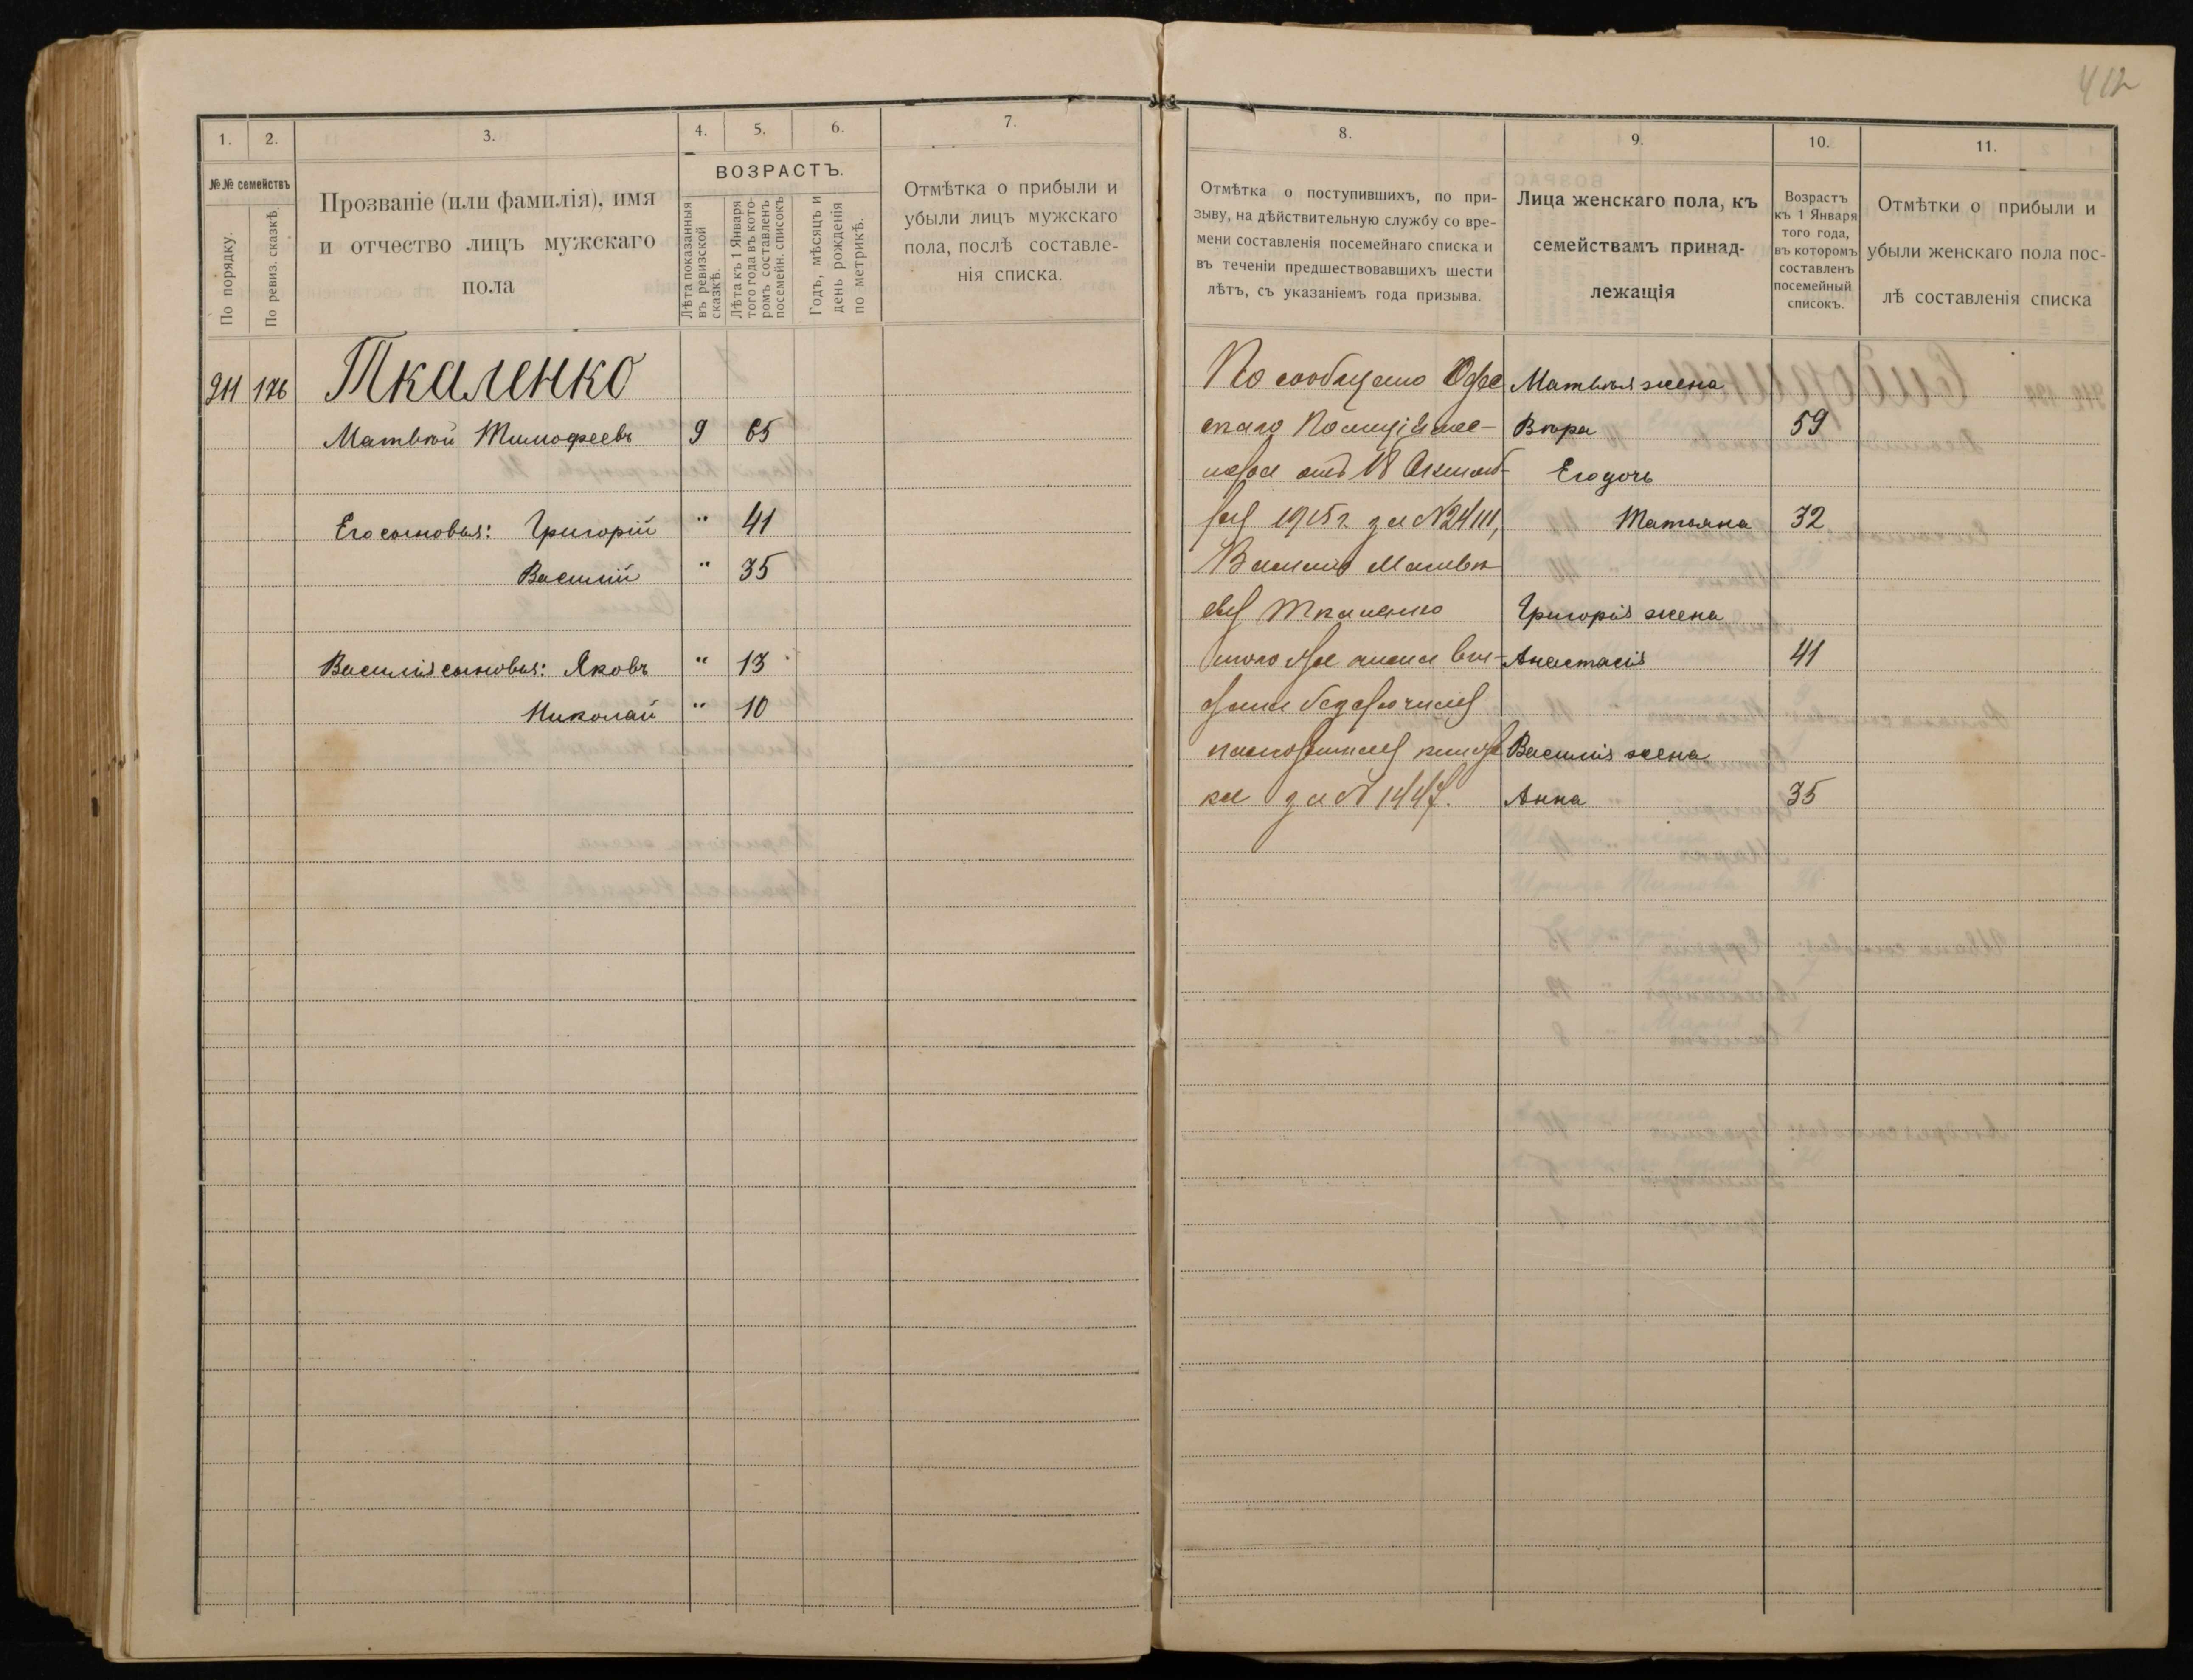 412
1. 2. 3. 4. 5. 6. 7.
№№ семействъ
По порядку.
По ревиз. сказкѣ.
Прозваніе (или фамилія), имя
и отчество лицъ мужскаго
пола
ВОЗРАСТЪ.
Лѣта показанныя
въ ревизской
сказкѣ.
Лѣта къ 1 Января
того года въ кото-
ромъ составленъ
посемейн. списокъ
Годъ, мѣсяцъ и
день рожденія
по метрикѣ.
Отмѣтка о прибыли и
убыли лицъ мужскаго
пола, послѣ составле-
нія списка.
911 176 Ткаленко
Матвѣй Тимофеевъ 9 65
Его сыновья: Григорій " 41
Василій " 35
Василія сыновья: Яковъ " 13
Николай " 10
8. 9. 10. 11.
Отмѣтка о поступившихъ, по при-
зыву, на дѣйствительную службу со вре-
мени составленія посемейнаго списка и
въ теченіи предшествовавшихъ шести
лѣтъ, съ указаніемъ года призыва.
Лица женскаго пола, къ
семействамъ принад-
лежащія
Возрастъ
къ 1 Января
того года,
въ которомъ
составленъ
посемейный
списокъ.
Отмѣтки о прибыли и
убыли женскаго пола пос-
лѣ составленія списка
По сообщенію
отъ 18
1915 г. за №
Василію Матвѣ
еву Ткаленко
за № 1447.
Матвѣя жена
Вѣра 59
Его дочь
Татьяна 32
Григорія жена
Анастасія 41
Василія жена
Анна 35